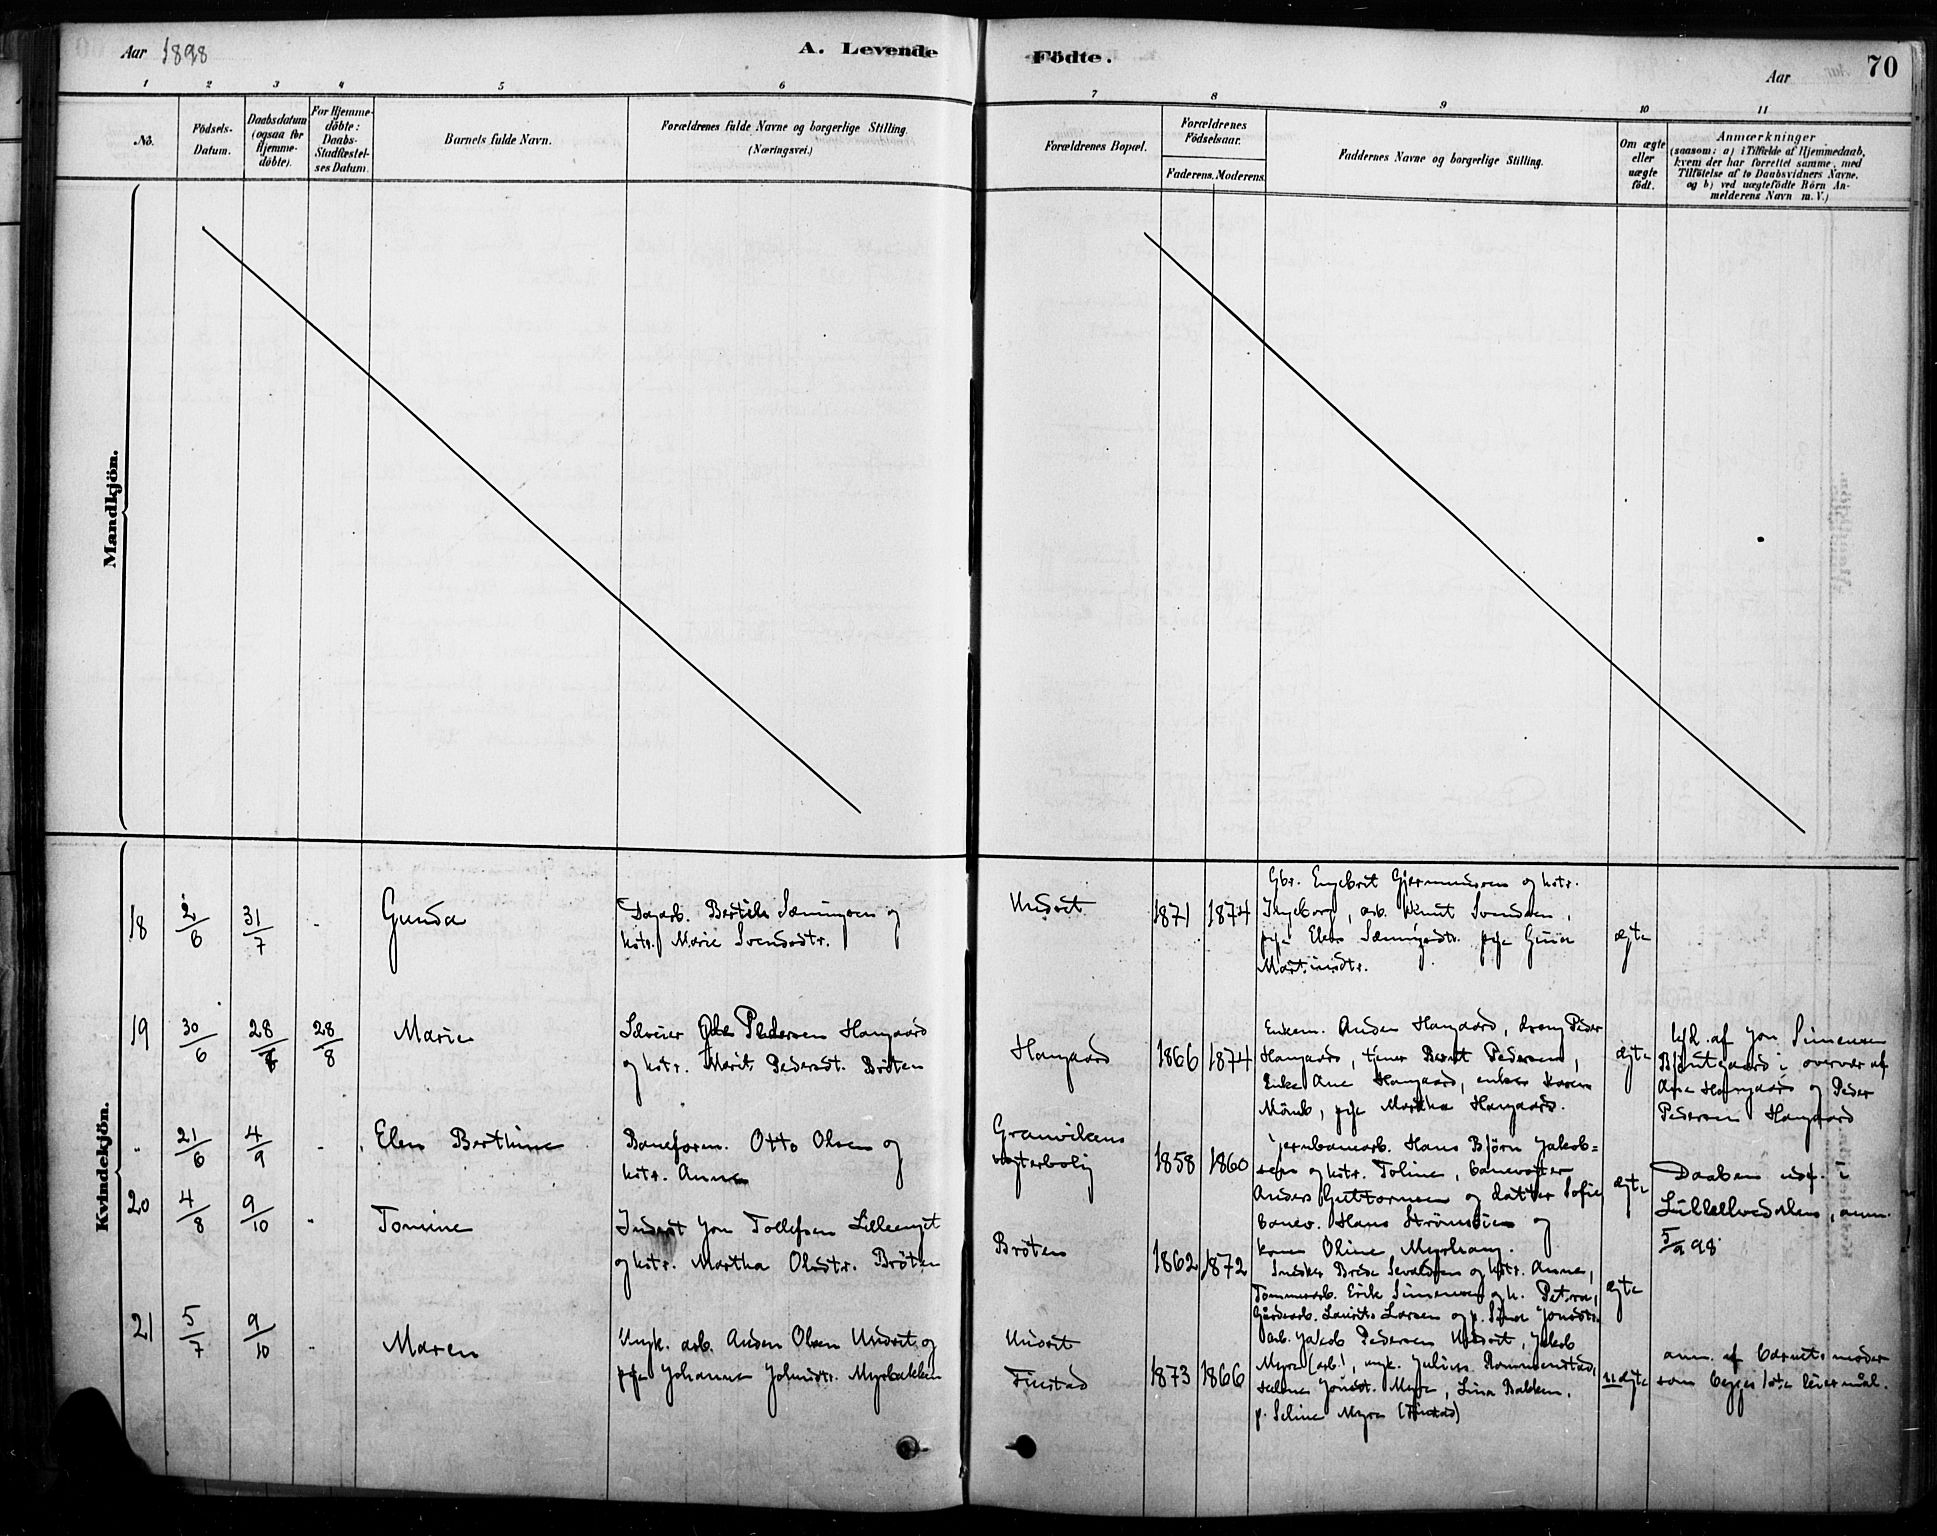 Aar 1898
A. Levende
Födte.
Aar
70
1 2 3 4 5 6 7 8 9 10 11
No.
Födsels-
Datum.
Daabsdatum
(ogsaa for
Hjemme-
döbte).
For Hjemme-
döbte:
Daabs-
Stadfæstel-
ses Datum.
Barnets fulde Navn.
Forældrenes fulde Navne og borgerlige Stilling.
(Næringsvei.)
Forældrenes Bopæl.
Forældrenes
Födselsaar.
Faderens. Moderens.
Faddernes Navne og borgerlige Stilling.
Om ægte
eller
uægte
födt.
Anmærkninger
(saasom: a) i Tilfælde af Hjemmedaab,
hvem der har forrettet samme, med
Tilföielse af to Daabsvidners Navne.
og b) ved uægtefödte Börn An-
melderens Navn m. V.)
Mandkjön.
Kvindekjön.
18
2/6
31/7
Gunda
Dagarb. Sæmingsen og
kstr. Marie Svendsdtr.
Undset
1871
1874
Gbr. Engebrit Gjermundsen og kstr.
Ingeborg, arb. Knut Svendsen,
pige pige
Martinsdtr.
ægte
19
30/6
28/8
28/8
Marie
Selveier Ole Pedersen Haugaard
og kstr. Marit Pedersdt. Bröten
Haugaard
1866
1874
Enkem. Anders Haugaard, dreng Peder
Haugaard, tjener Bernt Pedersen,
Enke Ane Haugaard, enke Karen
pige Martha Haugaard.
ægte
hjd. af Jon Simensen
i overvær af
Ane Haugaard og Peder
Pedersen Haugaard
"
21/6
4/9
Elen Berthine
Baneform. Otto Olsen og
kstr. Anna
Granvikens
vogterbolig
1858
1860
jernbanearb. Hans Björn Jakob=
sen og kstr. Toline, banevogter
Anders Guttormsen og datter Sofie
banev. Hans Strömlien og
kone Oline Myrhaug.
ægte
Daaben udf. i
Lilleelvedalen, anm.
5/9 98
20
4/8
9/10
Tomine
Inderst Jon Tollefsen Lilleenget
og kstr. Martha Olsdtr. Bröten
Bröten
1862
1872
Snedker Brede Sevaldsen og kstr. Anne,
Tömmerarb. Erik Simensen og h. Petra,
Gårdsarb. Laurits Larsen og p. Jonsdtr.
ægte
21
5/7
9/10
Maren
Ungk. arb. Anders Olsen Undset og
pige Johanne Johnsdtr. Myrbakken
Undset
Finstad
1873
1866
arb. Jakob Pedersen Undset, Jakob
Myre (arb.), ungk. Julius
Jonsdt. Myre, Lina Bakken,
p. Seline Myre (Finstad)
uægte
anm. af barnets moder
som begges 1ste leiermål.